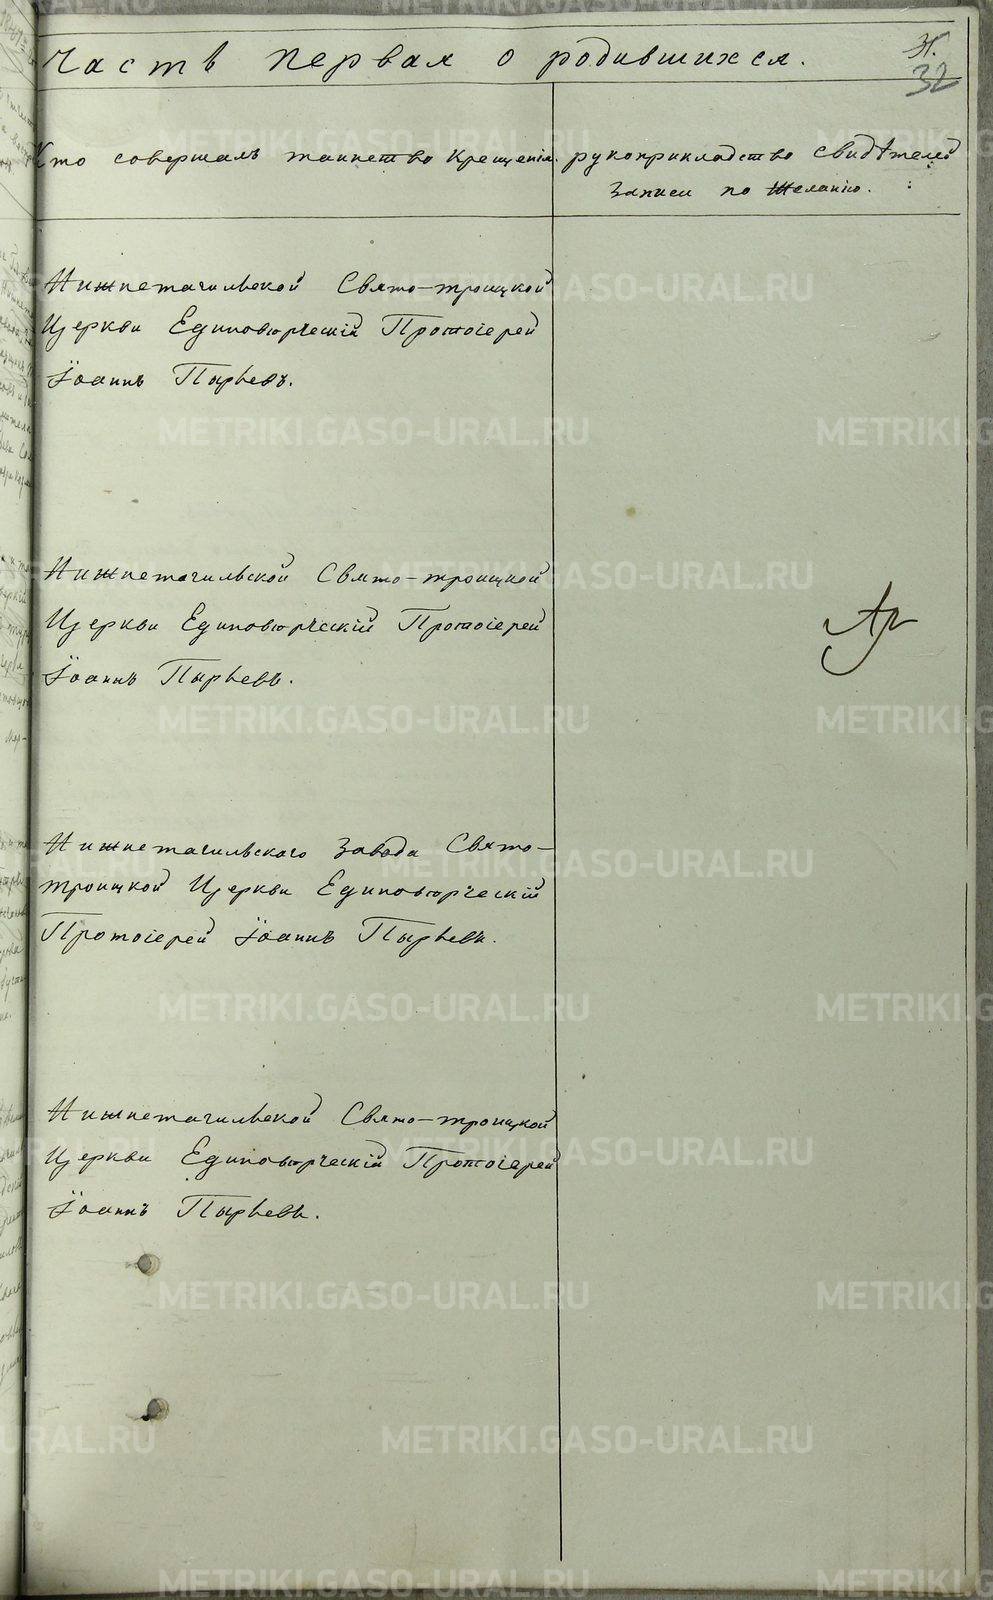 Часть первая о родившихся.
31.
32
Кто совершалъ таинство крещенія.
рукоприкладство свидѣтелей
записи по желанію.
Нижнетагильской Свято-троицкой
Церкви Единовѣрческій Протоіерей
Іоаннъ Пырьевъ.
Нижнетагильской Свято-троицкой
Церкви Единовѣрческій Протоіерей
Іоаннъ Пырьевъ.
Нижнетагильскаго Завода Свято-
троицкой Церкви Единовѣрческій
Протоіерей Іоаннъ Пырьевъ.
Нижнетагильской Свято-троицкой
Церкви Единовѣрческій Протоіерей
Іоаннъ Пырьевъ.
METRIKI.GASO-URAL.RU